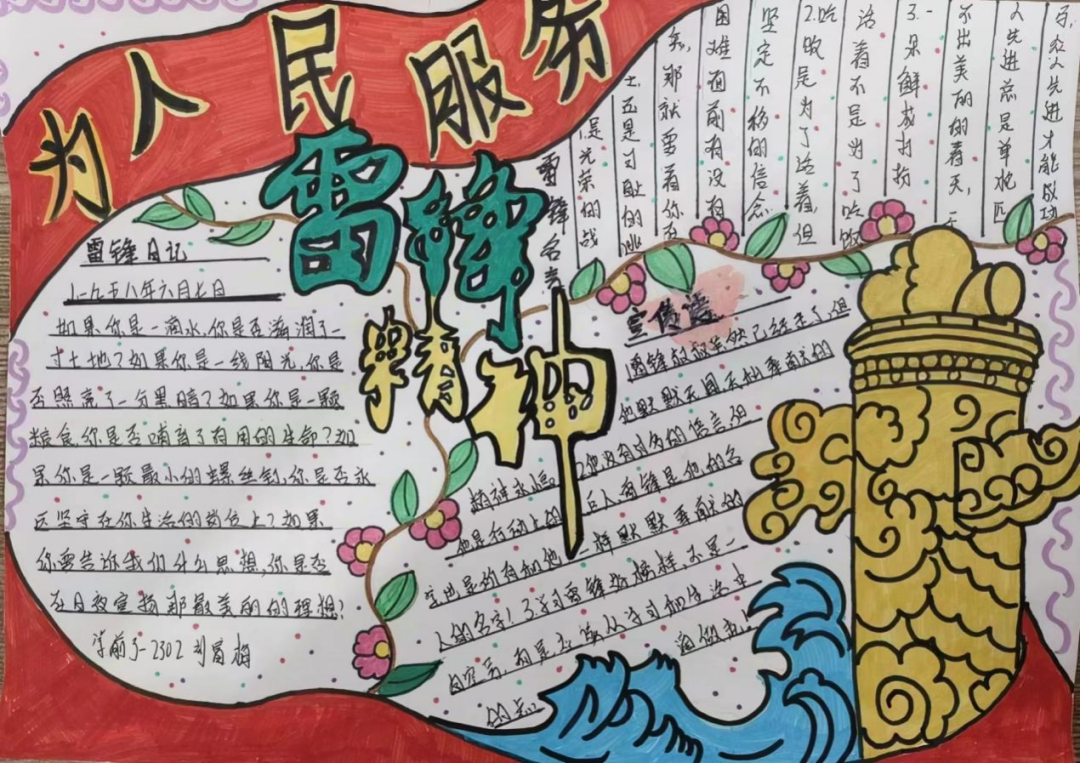 为人民服务
雷锋
精神
雷锋日记
一九五八年六月七日
如果你是一滴水,你是否滋润了一
寸土地?如果你是一线阳光,你是
否照亮了一分黑暗?如果你是一颗
粮食,你是否哺育了有用的生命?如
果你是一颗最小的螺丝钉,你是否永
远坚守在你生活的岗位上?如果
你要告诉我们什么思想,你是否
在日夜宣扬那最美丽的理想?
学前了-2302
雷锋名言
是光荣的战
士,还是可耻的逃
那就要看你在
困难面前有没有
坚定不移的信念
2.吃饭是为了活着,但
活着不是为了吃饭
3.一朵鲜花打扮
不出美丽的春天,
人先进总是单
众人先进才能成功
宣传语
雷锋叔叔虽然已经走了,但
精神永恒
他默默无闻无私奉献的
2.他没有过多的语言,但
他是行动上的
人,雷锋是他的名
字,也是所有和他一样默默奉献的
人的名字!3.学习雷锋好榜样,不是一